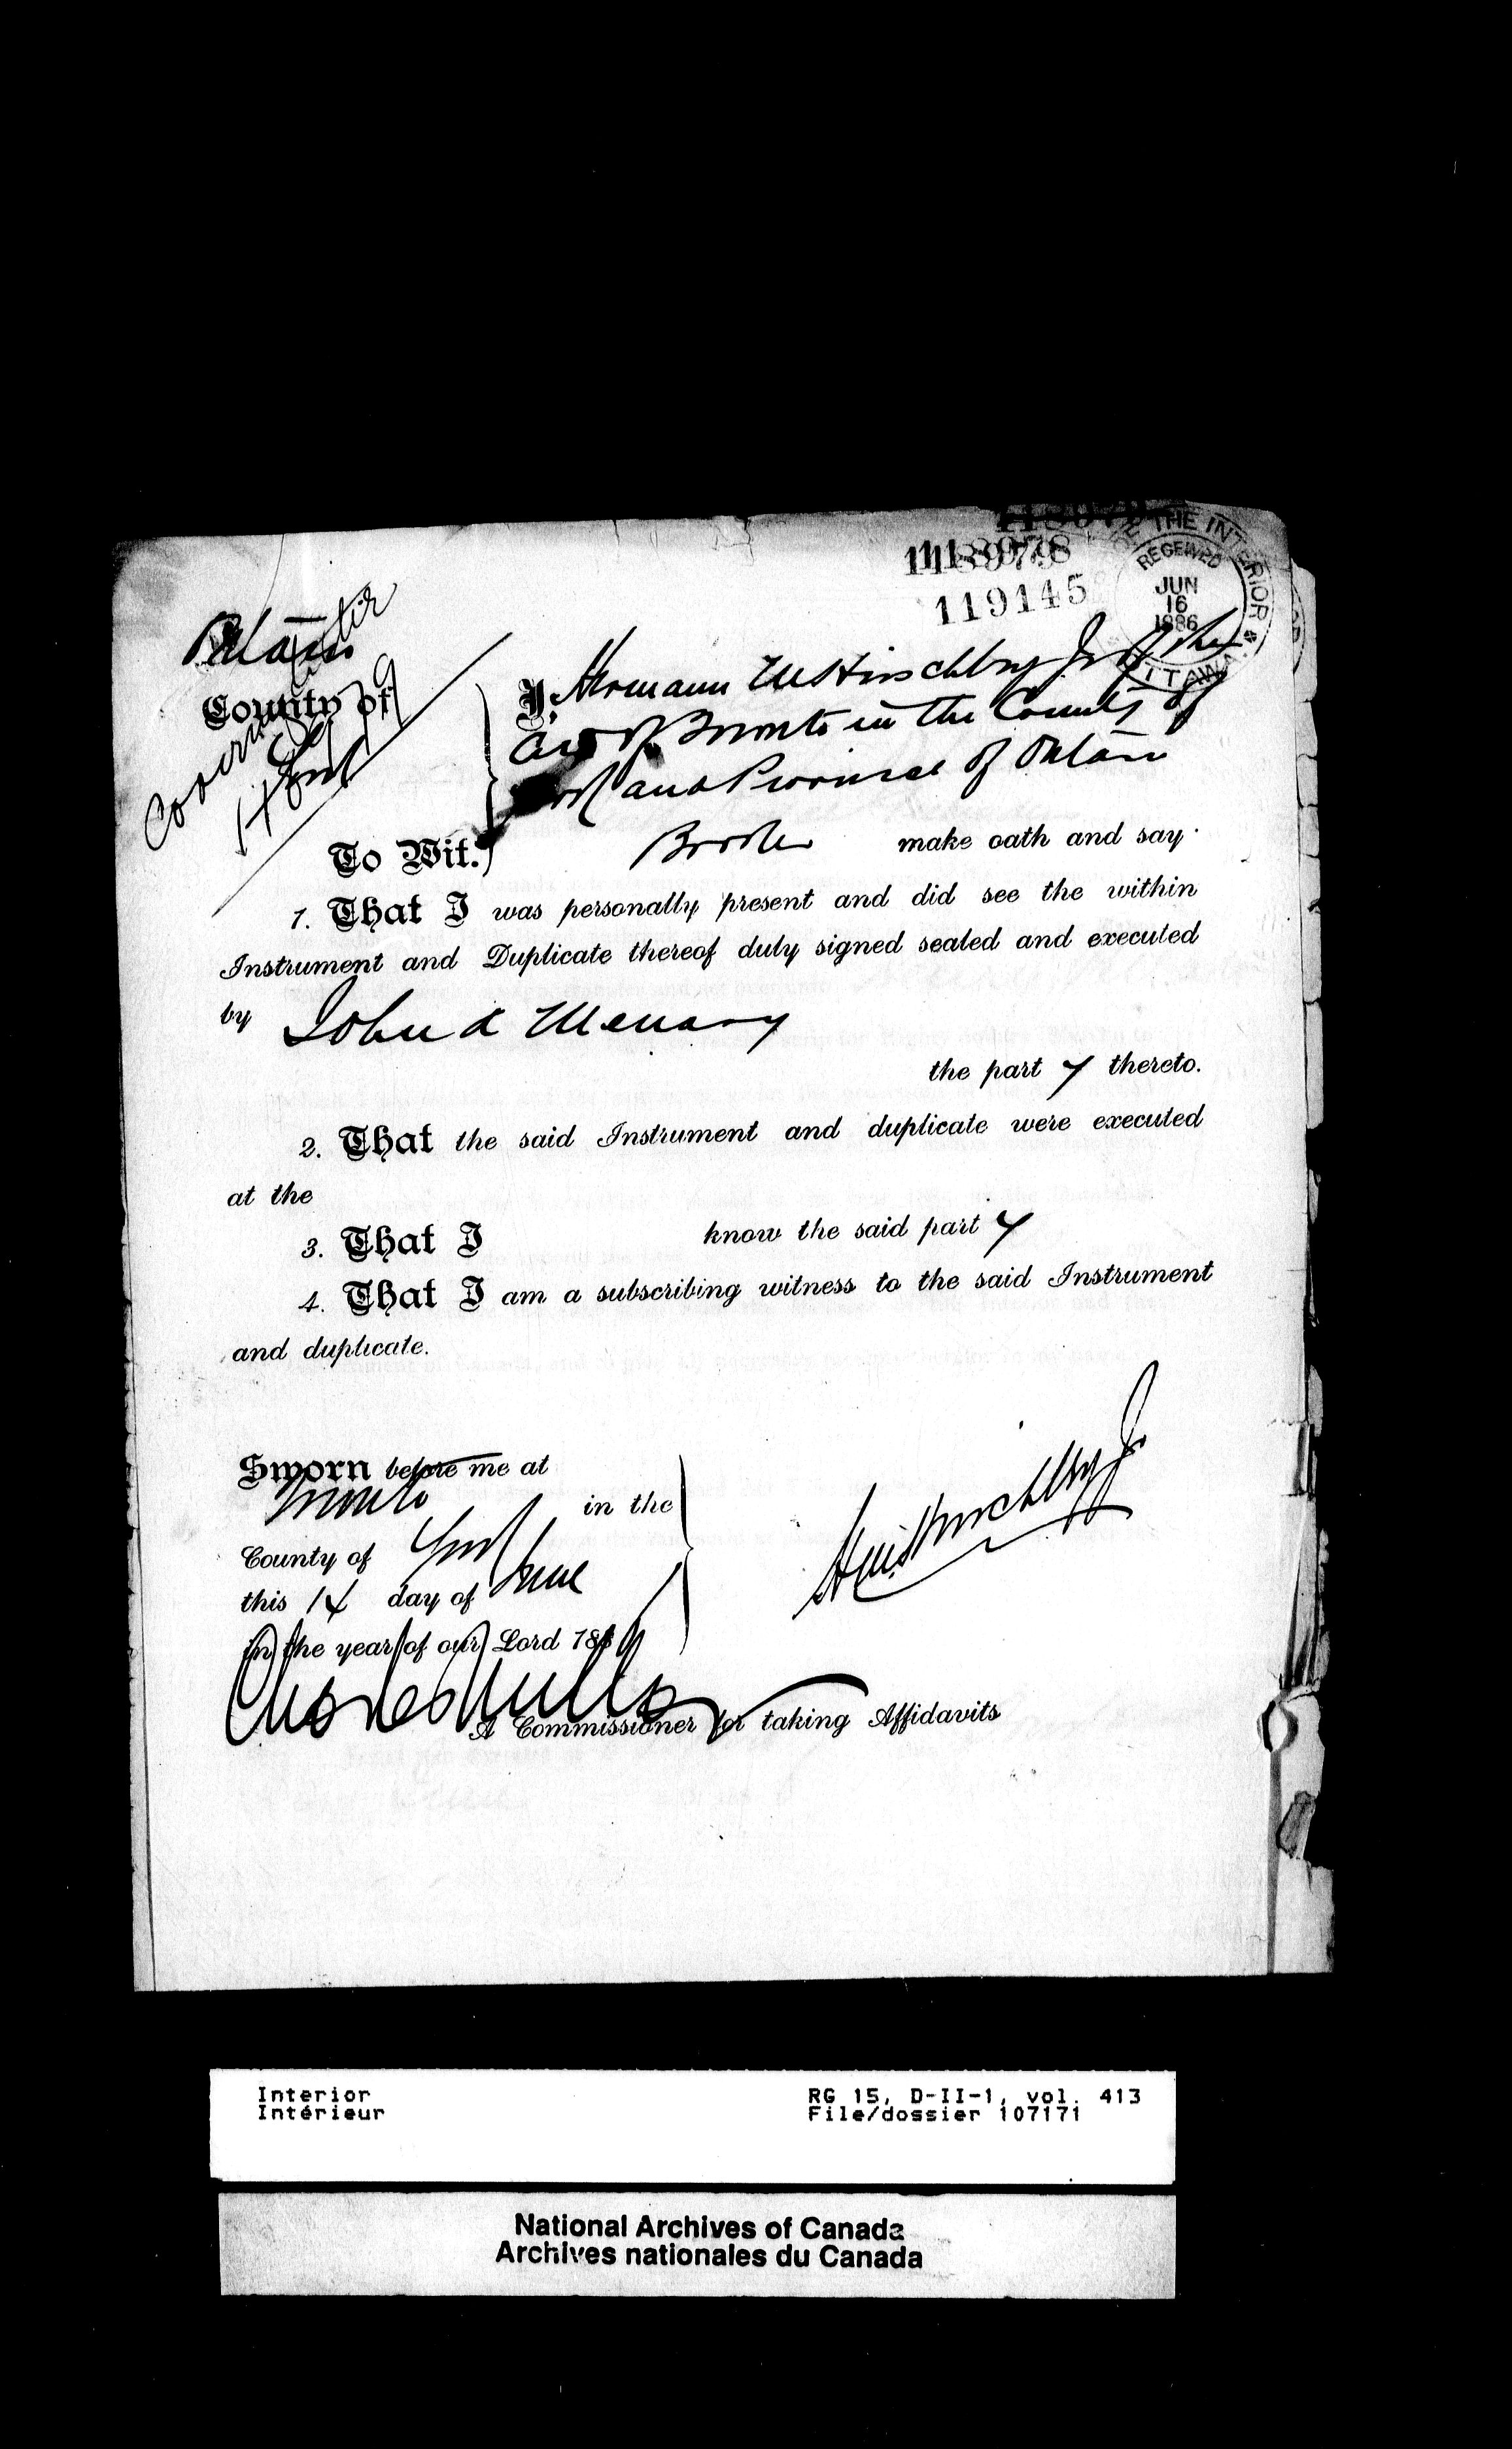 118979
119145
THE INTERIOR
RECEIVED
JUN
16
1886
OTTAWA
Ontario
County of
I, Hermann
of Toronto in the County of
York and Province of Ontario
To Wit.
Broker make oath and say
1. That I was personally present and did see the within
Instrument and Duplicate thereof duly signed sealed and executed
by John
the party thereto.
2. That the said Instrument and duplicate were executed
at the
3. That I know the said party
4. That I am a subscribing witness to the said Instrument
and duplicate.
Sworn before me at
Toronto in the
County of York
this 14 day of June
in the year of our Lord 188
A Commissioner for taking Affidavits
Interior
Intérieur
RG 15, D-II-1, vol. 413
File/dossier 107171
National Archives of Canada
Archives nationales du Canada